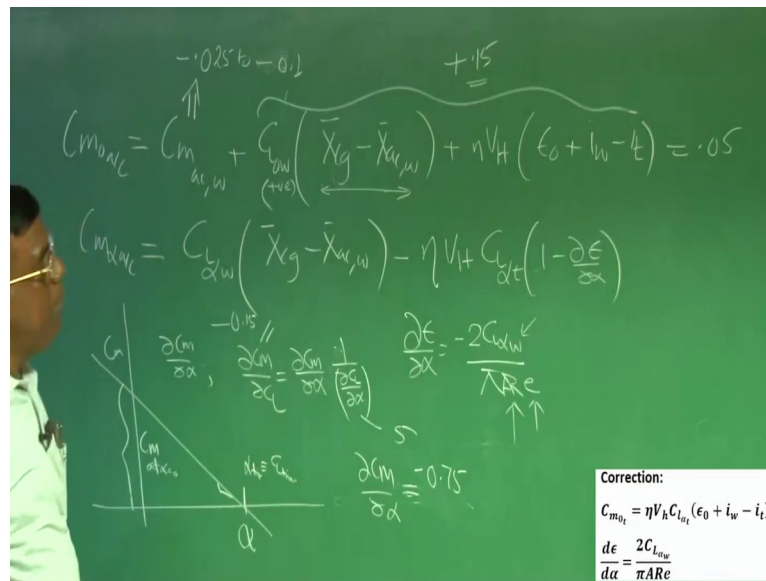 -.025 to -0.1
+.15
C_{m_{0 a/c}} = C_{m_{ac,w}} + C_{L_{0w}} (X̄_{cg} - X̄_{ac,w}) + ηV_H (ε_0 + i_w - i_t) = .05
(+ve)
C_{m_{α a/c}} = C_{L_{αw}} (X̄_{cg} - X̄_{ac,w}) - ηV_H C_{L_{αt}} (1 - ∂ε/∂α)
-0.15
C_m
∂C_m/∂α ; ∂C_m/∂C_L = ∂C_m/∂α 1/(∂C_L/∂α)
∂ε/∂α = -2C_{Lαw}/πARe
5
C_m at α=0
∂C_m/∂α = -0.75
α
Correction:
C_{m_{0_t}} = ηV_h C_{l_{a_t}} (ε_0 + i_w - i_t)
dε/dα = 2C_{L_{a_w}}/πARe